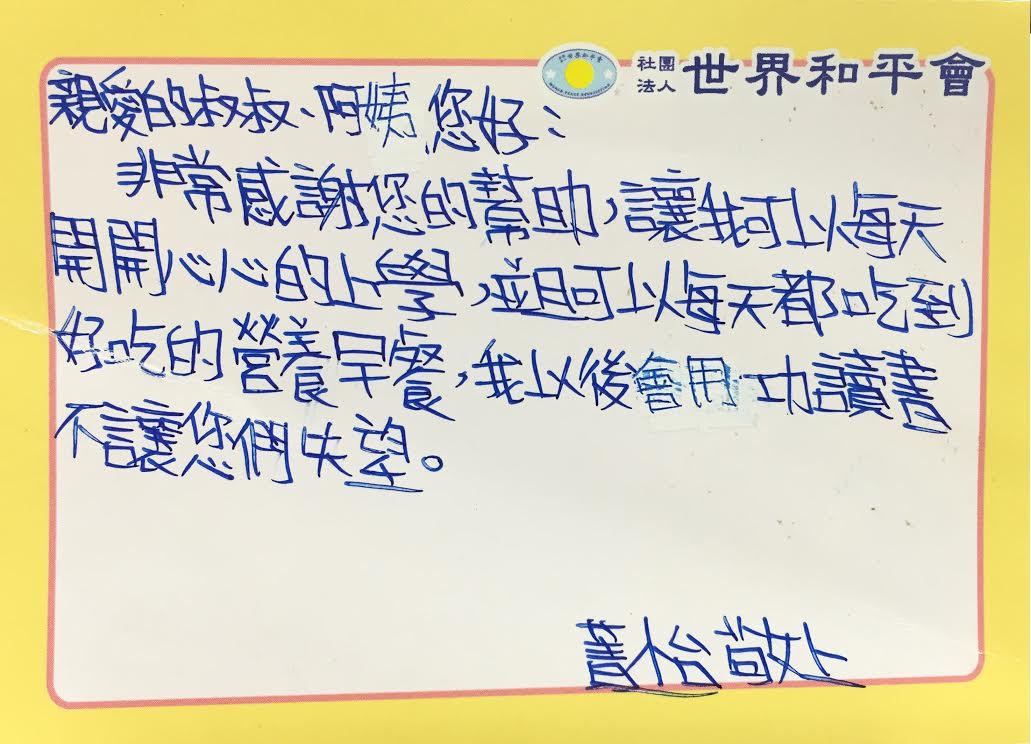 社團法人 世界和平會
親愛的叔叔、阿姨您好：
非常感謝您的幫助，讓我可以每天
開開心心的上學，並且可以每天都吃到
好吃的營養早餐，我以後會用功讀書
不讓您們失望。
怡敬上